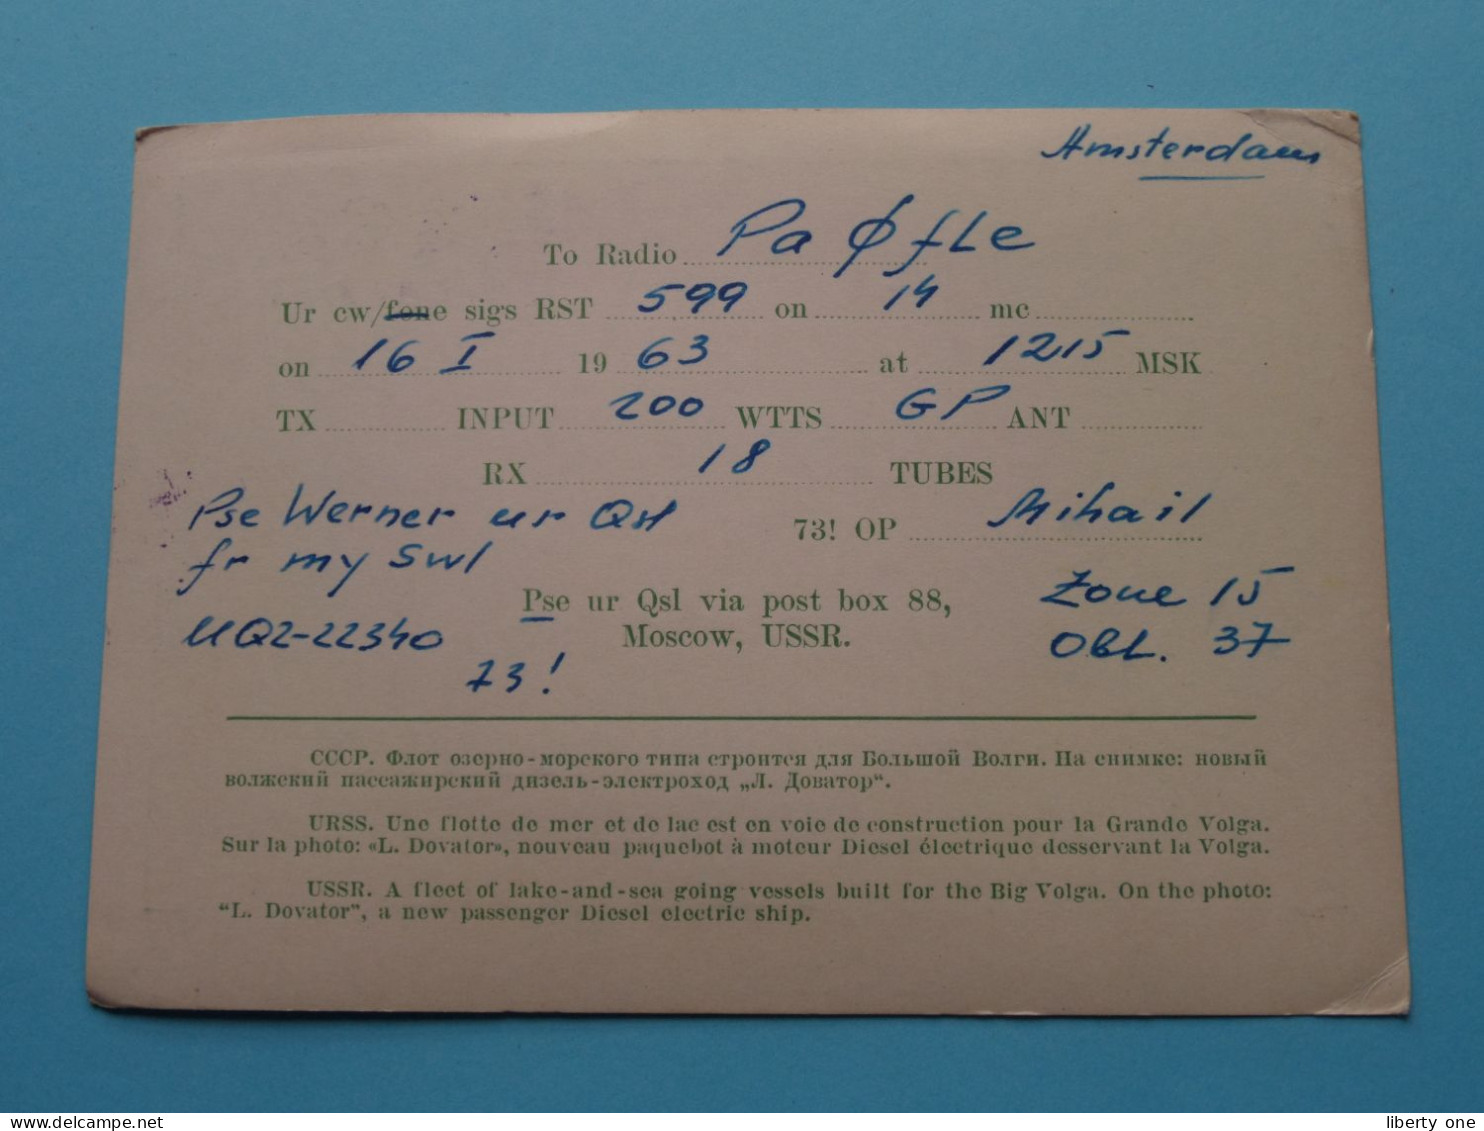 Amsterdam
To Radio Pa Ø fLe
Ur cw/fone sigs RST 599 on 14 mc
on 16 I 1963 at 1215 MSK
TX INPUT 200 WTTS GP ANT
RX 18 TUBES
Pse Werner ur Qsl
73! OP Mihail
fr my Swl
Pse ur Qsl via post box 88,
Zone 15
UQ2-22340
Moscow, USSR.
Obl. 37
73!
СССР. Флот озерно-морского типа строится для Большой Волги. На снимке: новый
волжский пассажирский дизель-электроход „Л. Доватор“.
URSS. Une flotte de mer et de lac est en voie de construction pour la Grande Volga.
Sur la photo: «L. Dovator», nouveau paquebot à moteur Diesel électrique desservant la Volga.
USSR. A fleet of lake-and-sea going vessels built for the Big Volga. On the photo:
“L. Dovator”, a new passenger Diesel electric ship.
www.delcampe.net
liberty one